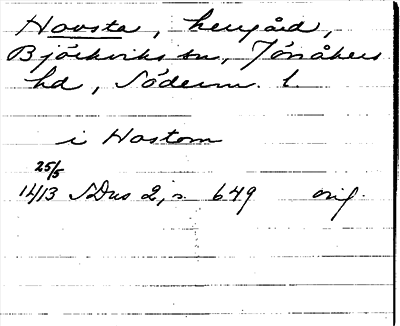 Hovsta, herrgård,
Björkviks sn, Jönåkers
hd, Söderm. l.
i Hostom
25/5
1413 SDns 2, s. 649 orig.